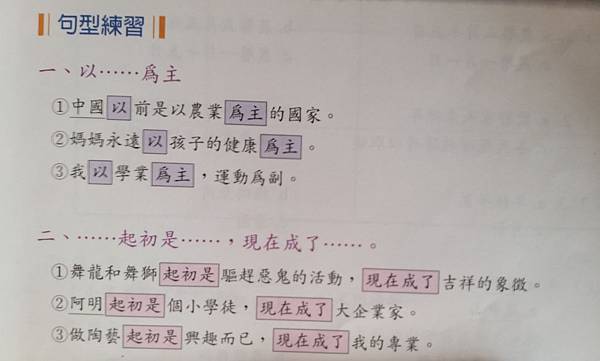 句型練習
一、以……爲主
①中國以前是以農業爲主的國家。
②媽媽永遠以孩子的健康爲主。
③我以學業爲主，運動爲副。
二、……起初是……，現在成了……。
①舞龍和舞獅起初是驅趕惡鬼的活動，現在成了吉祥的象徵。
②阿明起初是個小學徒，現在成了大企業家。
③做陶藝起初是興趣而已，現在成了我的專業。